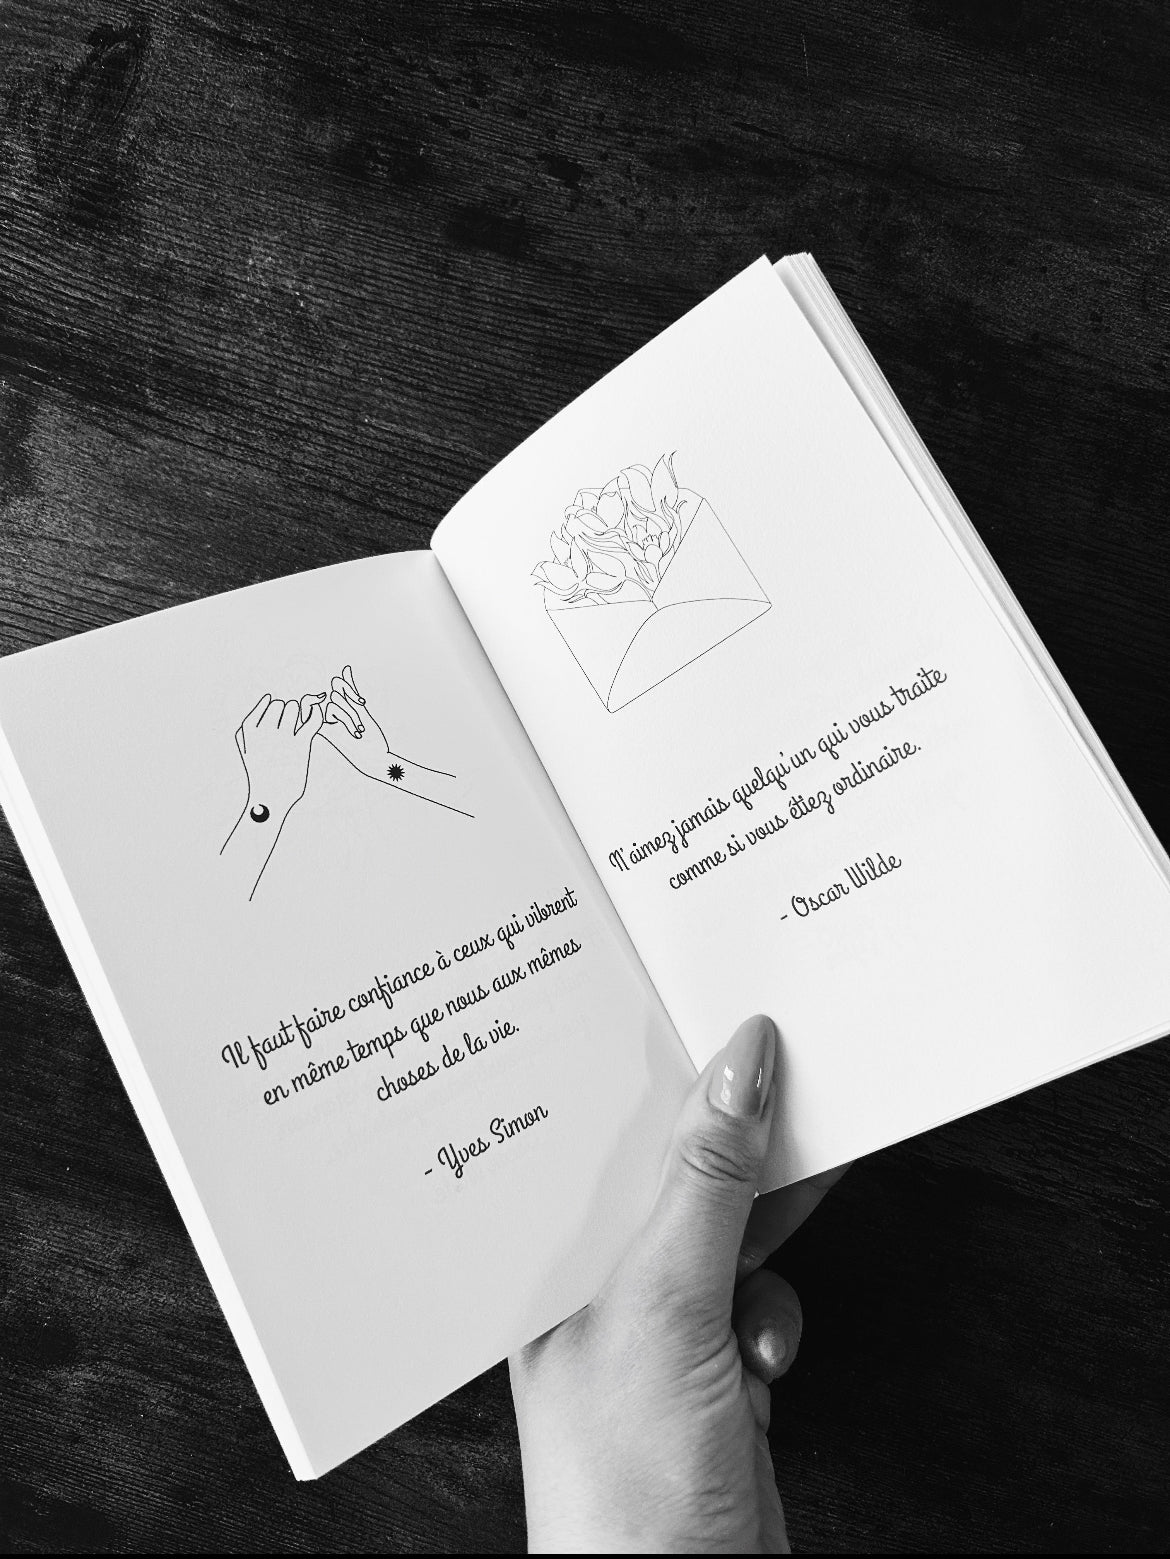 Il faut faire confiance à ceux qui vibrent
en même temps que nous aux mêmes
choses de la vie.
- Yves Simon
N'aimez jamais quelqu'un qui vous traite
comme si vous étiez ordinaire.
- Oscar Wilde